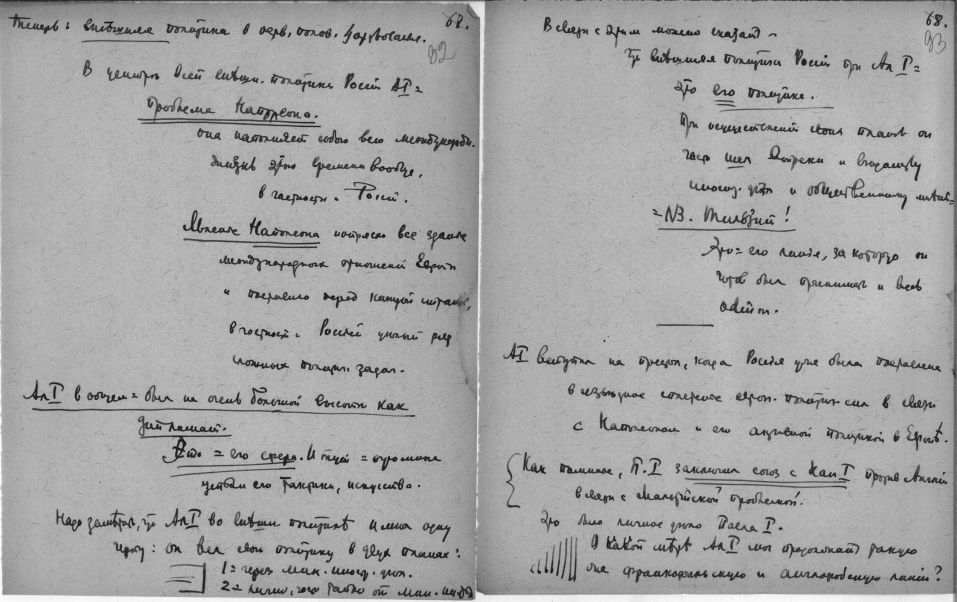 67.
Теперь: внешняя политика в перв. полов. царствования.
92
В центре всей внешн. политики России АI =
проблема Наполеона.
она наполняет собою всю международн.
жизнь этого времени вообще,
в частности – России.
Явление Наполеона потрясло все здание
международных отношений Европы
и поставило перед каждой страной,
в частности – Россией целый ряд
сложных политич. задач.
Ал I в общем = был на очень большой высоте как
дипломат.
Это = его сфера. И тут = огромные
его тактики, искусства.
Надо заметить, что Ал I во внешн. политике имел одну
черту: он вел свою политику в двух планах:
1 = через мин. иностр. дел.
2 = лично, часто тайно от мин. ин. д.
68.
93
В связи с этим можно сказать –
что внешняя политика России при Ал I =
это его политика.
При осуществлении своих планов он
часто шел вопреки и ведомству
иностр. дел и общественному мнен. =
= NB. Тильзит!
Это = его линия, за которую он
готов был принимать и весь
одиум.
АI вступил на престол, когда Россия уже была поставлена
в сложное европ. политич. сил в связи
с Наполеоном и его активной политикой в Европе.
Как помним, П. I заключил союз с Нап. I против Англии
в связи с Мальтийской проблемой.
Это было личное дело Павла I.
В какой мере Ал I мог продолжать такую
же франкофильскую и англофобскую линию?